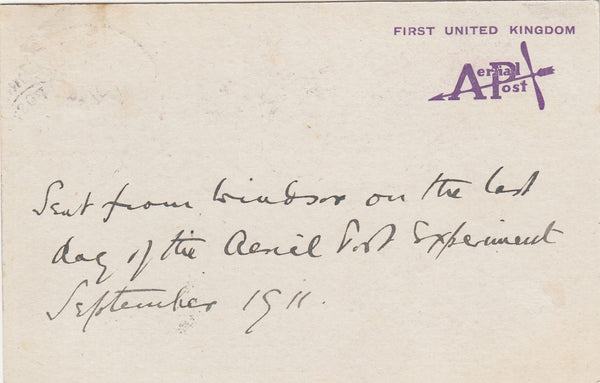 FIRST UNITED KINGDOM
Aerial Post
Sent from Windsor on the last
day of the Aerial Post Experiment
September 1911.